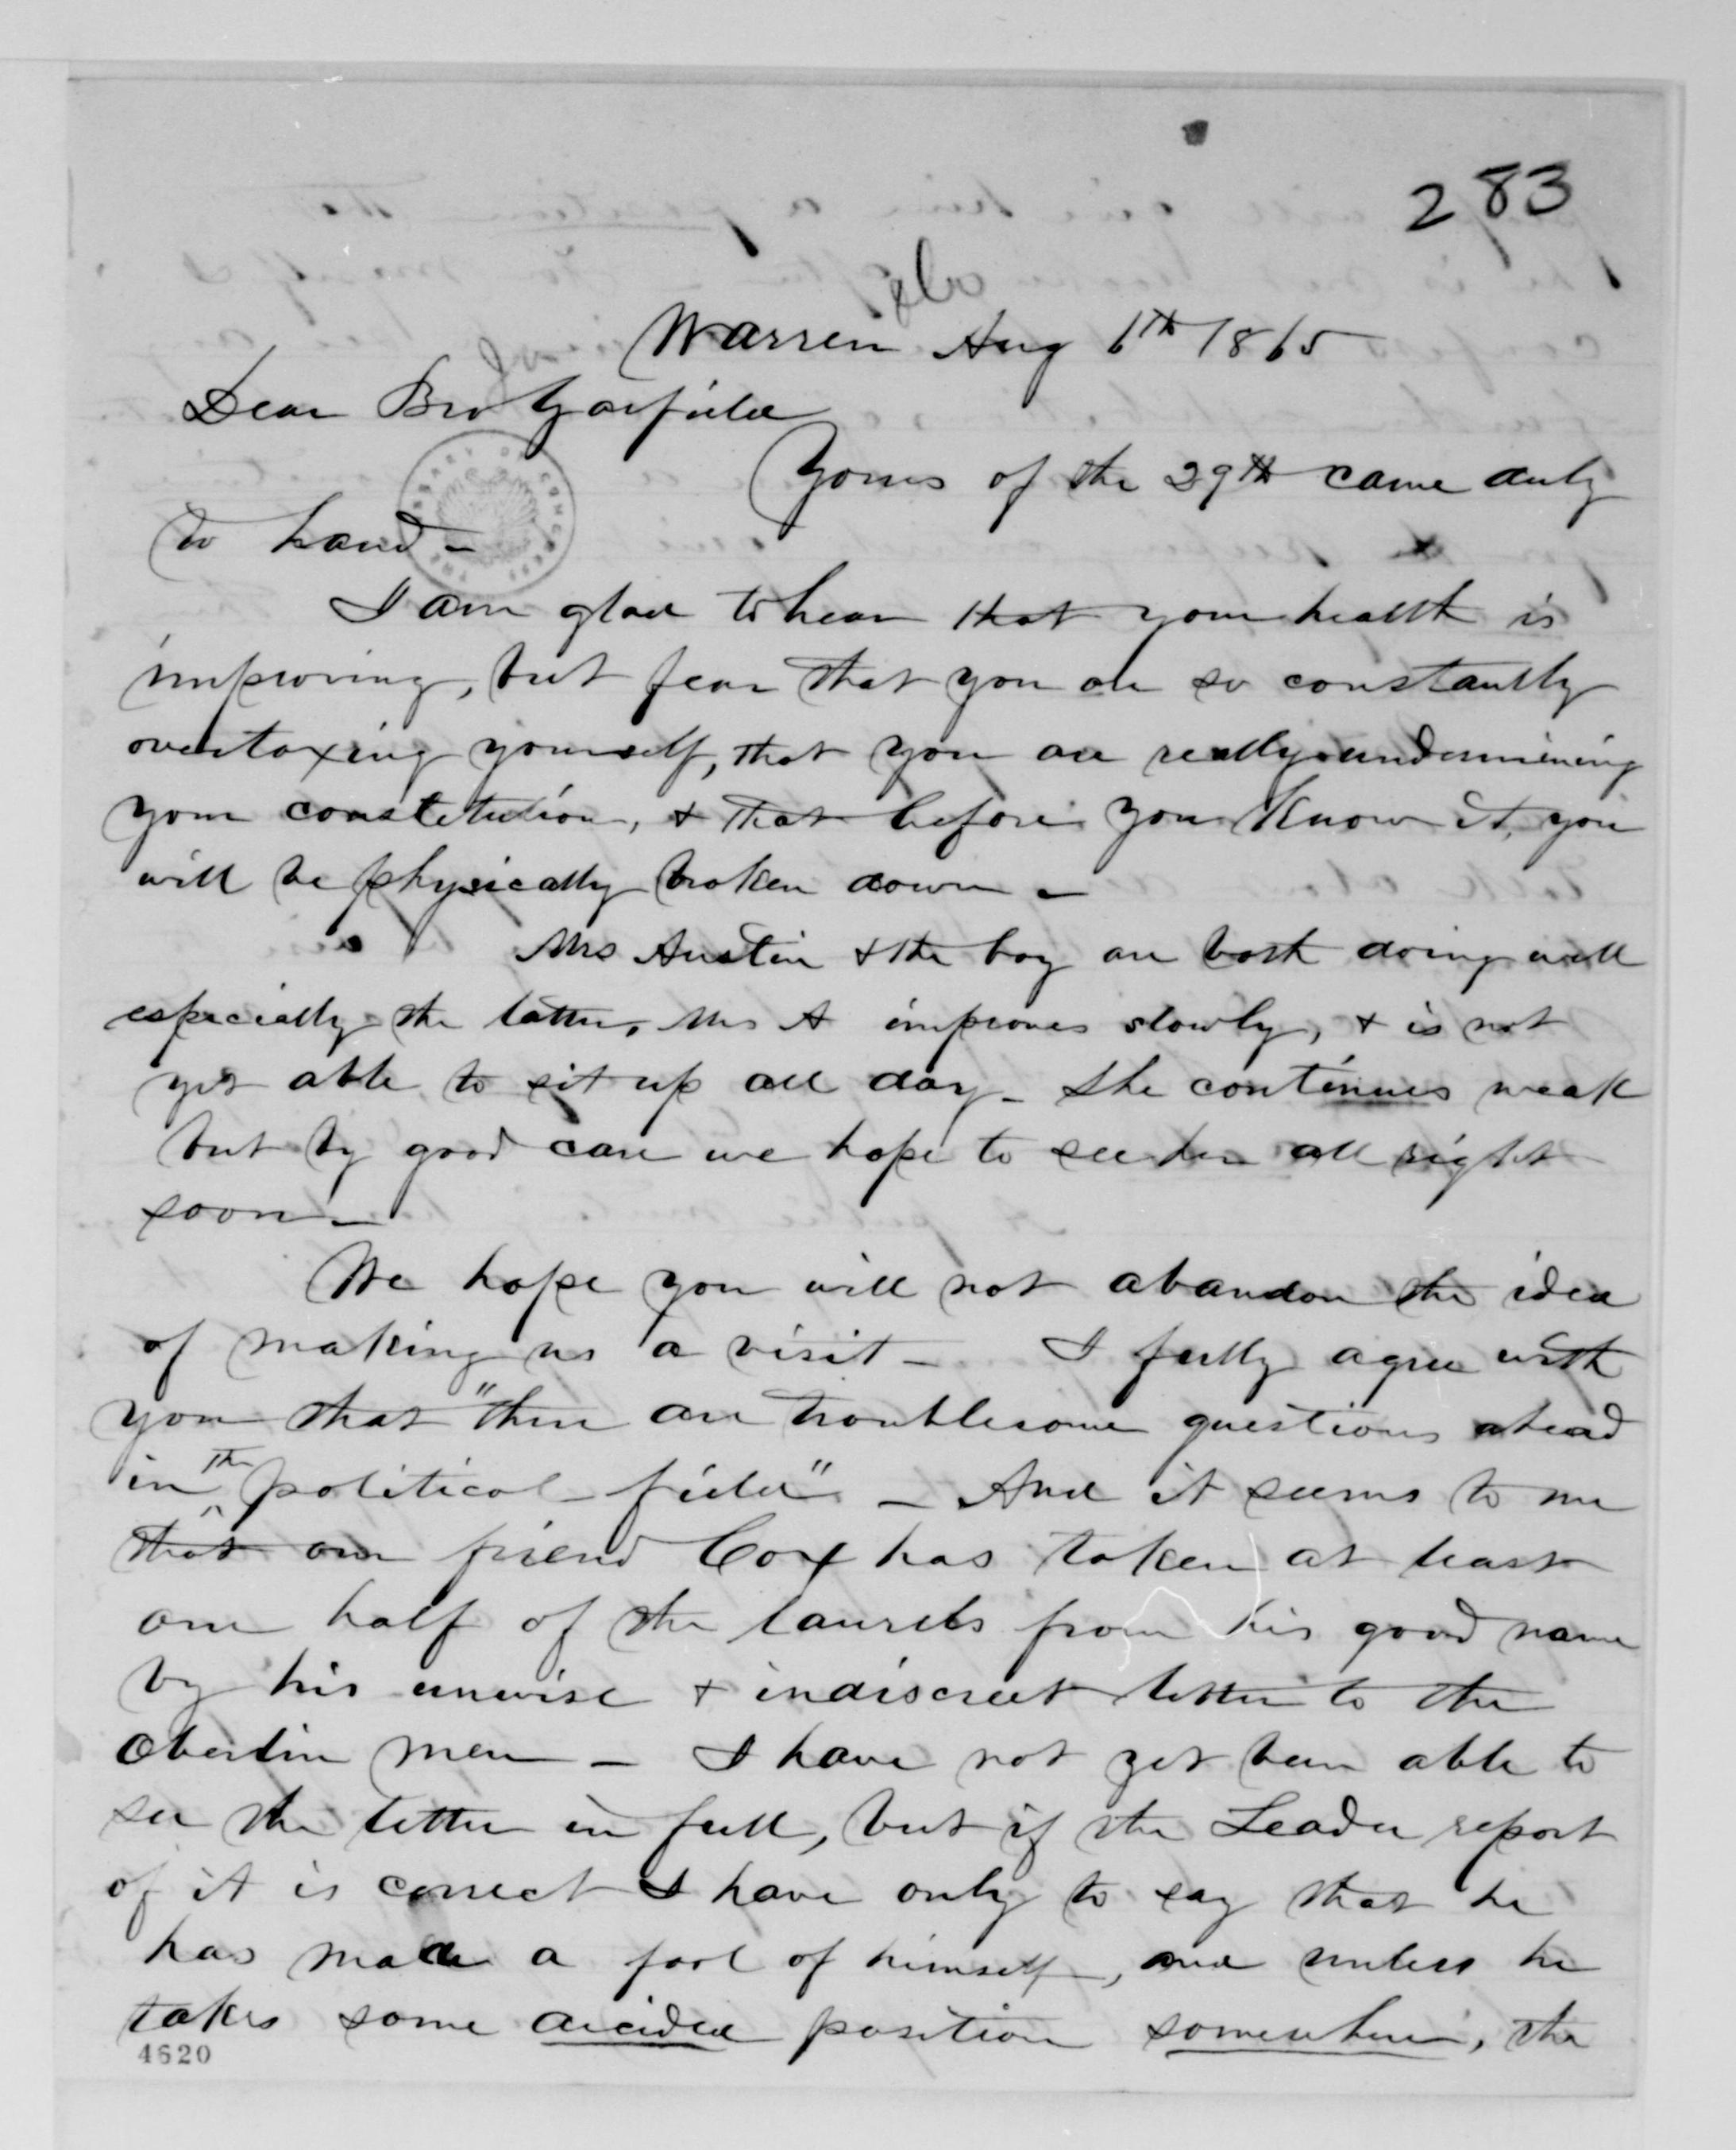 283
Warren Aug 6th 1865
Dear Bro Garfield
Yours of the 29th came duly
to hand -
I am glad to hear that your health is
improving, but fear that you are so constantly
overtaxing yourself, that you are really undermining
your constitution, & that before you know it, you
will be physically broken down -
Mrs Austin & the boy are both doing well
especially the latter, Mrs A improves slowly, & is not
yet able to sit up all day - She continues weak
but by good care we hope to see her all right
soon -
We hope you will not abandon the idea
of making us a visit - I fully agree with
you that "there are troublesome questions ahead
in the political field" - And it seems to me
that our friend Cox has taken at least
one half of the laurels from his good name
by his unwise & indiscreet letter to the
Oberlin men - I have not yet been able to
see the letter in full, but if the Leader report
of it is correct I have only to say that he
has made a fool of himself, and unless he
takes some decided position somewhere, the
4620